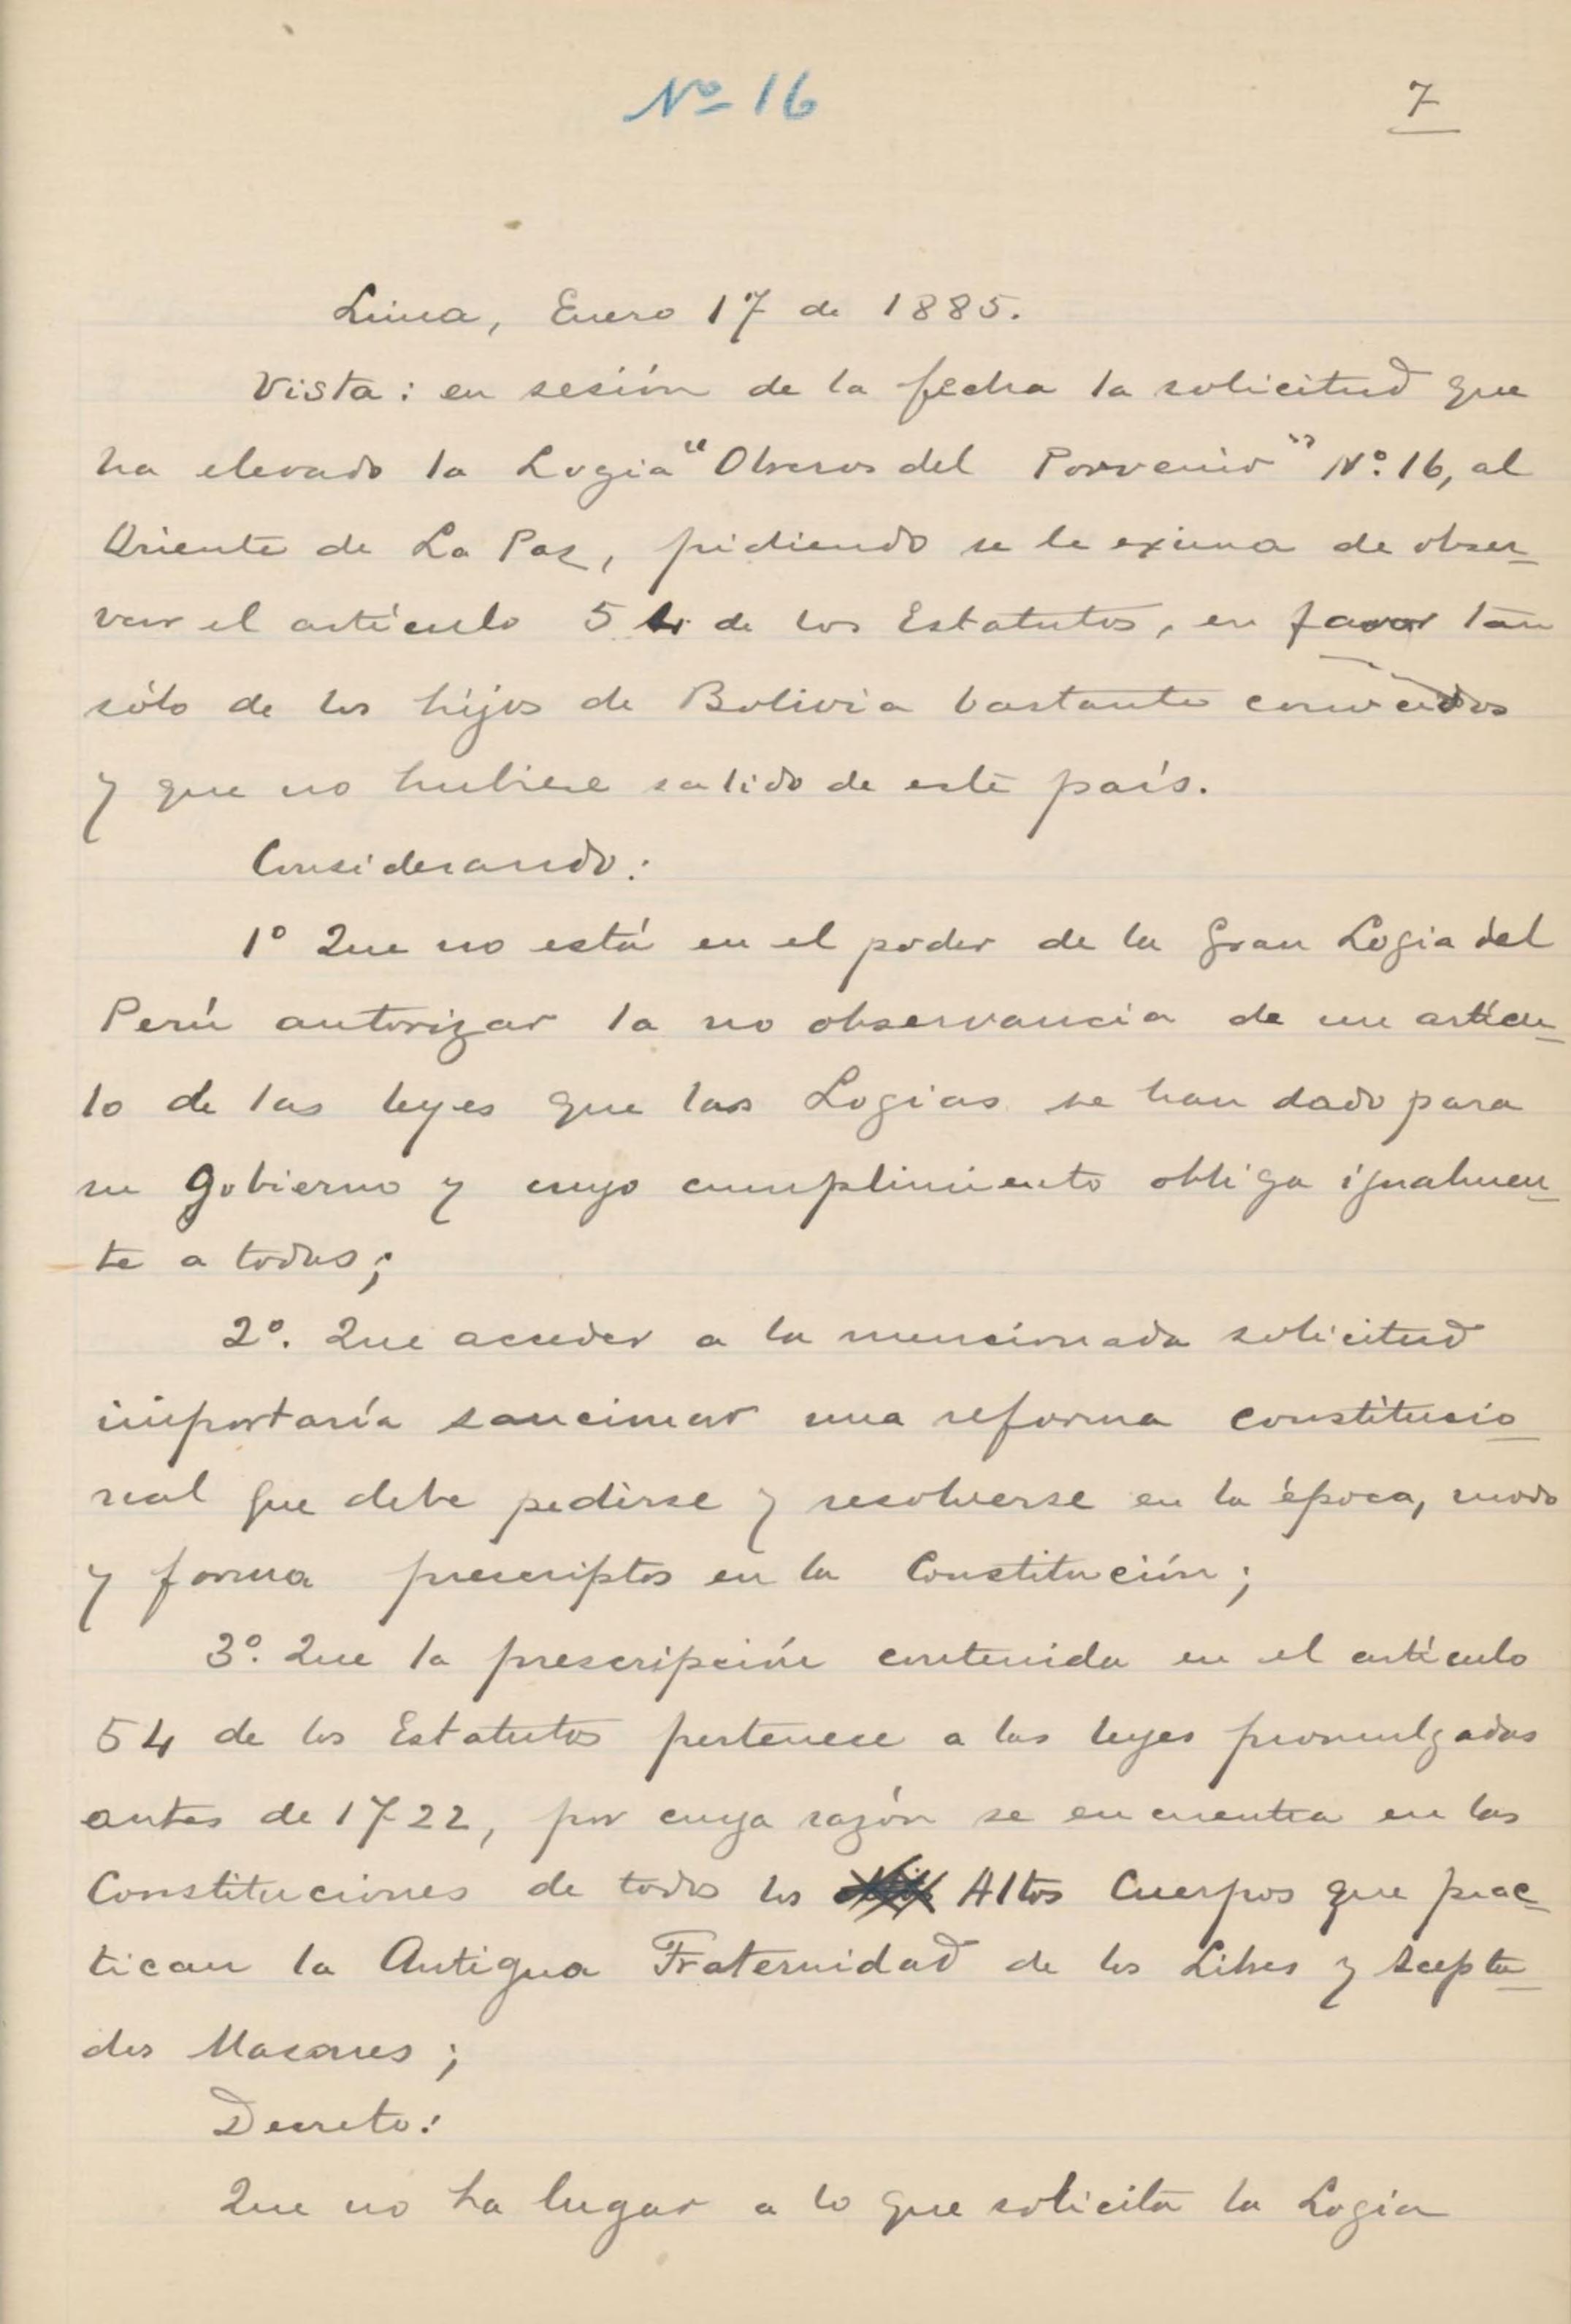 Nº 16
7
Lima, Enero 17 de 1885.
Vista: en sesión de la fecha la solicitud que
ha elevado la Logia "Obreros del Porvenir" Nº. 16, al
Oriente de La Paz, pidiendo se le exima de obser-
var el artículo 54 de los Estatutos, en favor tan
sólo de los hijos de Bolivia bastante conocidos
y que no hubiese salido de este país.
Considerando:
1º Que no está en el poder de la Gran Logia del
Perú autorizar la no observancia de un artícu-
lo de las leyes que las Logias se han dado para
su gobierno y cuyo cumplimiento obliga igualmen-
te a todas;
2º. Que acceder a la mencionada solicitud
importaría sancionar una reforma constitucio-
nal que debe pedirse y resolverse en la época, modo
y forma prescriptos en la Constitución;
3º. Que la prescripción contenida en el artículo
54 de los Estatutos pertenece a las leyes promulgadas
antes de 1722, por cuya razón se encuentra en las
Constituciones de todos los Altos Cuerpos que prac-
tican la Antigua Fraternidad de los Libres y Acepta-
dos Masones;
Decreto:
Que no ha lugar a lo que solicita la Logia